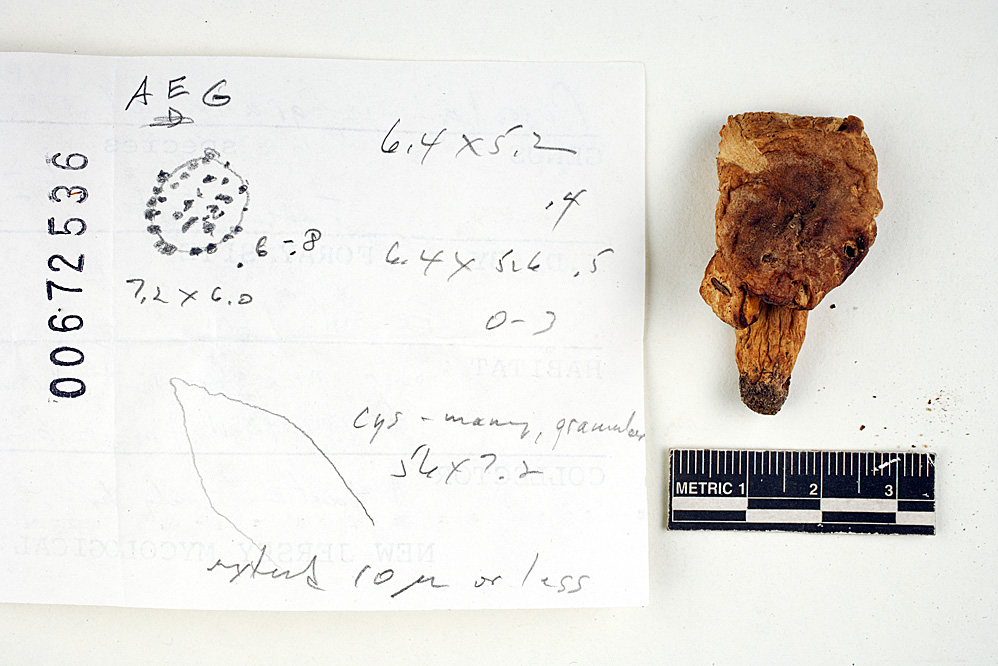 00672536
A E G
D
6.4 x 5.2
.4
.6 - 8
6.4 x 5.6 .5
7.2 x 6.0
0-3
cys - many, granular
56 x 7.2
extend 10 µ or less
GENUS
species
HABITAT
COLLECTOR
NEW JERSEY MYCOLOGICAL
METRIC 1 2 3